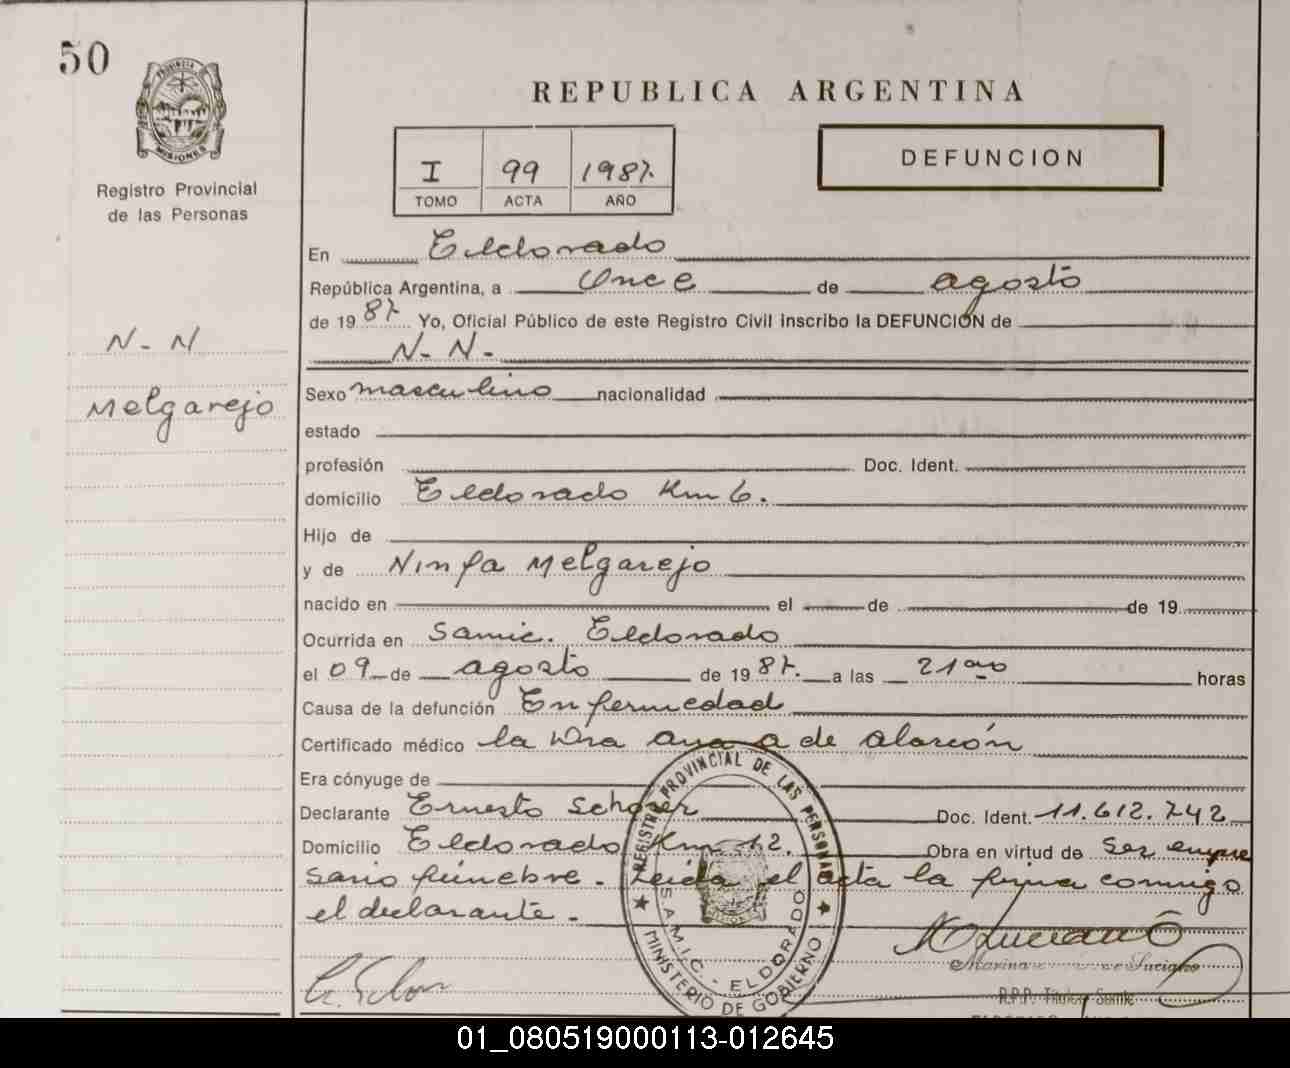 50
PROVINCIA DE
MISIONES
Registro Provincial
de las Personas
N - N
Melgarejo
REPUBLICA ARGENTINA
I 99 1987.
TOMO ACTA AÑO
DEFUNCION
En Eldorado
República Argentina, a Once de agosto
de 19 87. Yo, Oficial Público de este Registro Civil inscribo la DEFUNCIÓN de
N - N -
Sexo masculino nacionalidad
estado
profesión Doc. Ident.
domicilio Eldorado Km 6.
Hijo de
y de Ninfa Melgarejo
nacido en el de de 19
Ocurrida en Samic. Eldorado
el 09 de agosto de 19 87. a las 21 horas
Causa de la defunción Enfermedad
Certificado médico la Dra de alarcón
Era cónyuge de
Declarante Ernesto Schorer Doc. Ident. 11.612.742
Domicilio Eldorado Km 12. Obra en virtud de Ser empre
sario fúnebre. Leida el acta la firma conmigo
el declarante.
REGISTRO PROVINCIAL DE LAS PERSONAS
S.A.M.I.C. - ELDORADO
MINISTERIO DE GOBIERNO
Marina de Luciano
R.P.P. Titular Samic
01_080519000113-012645